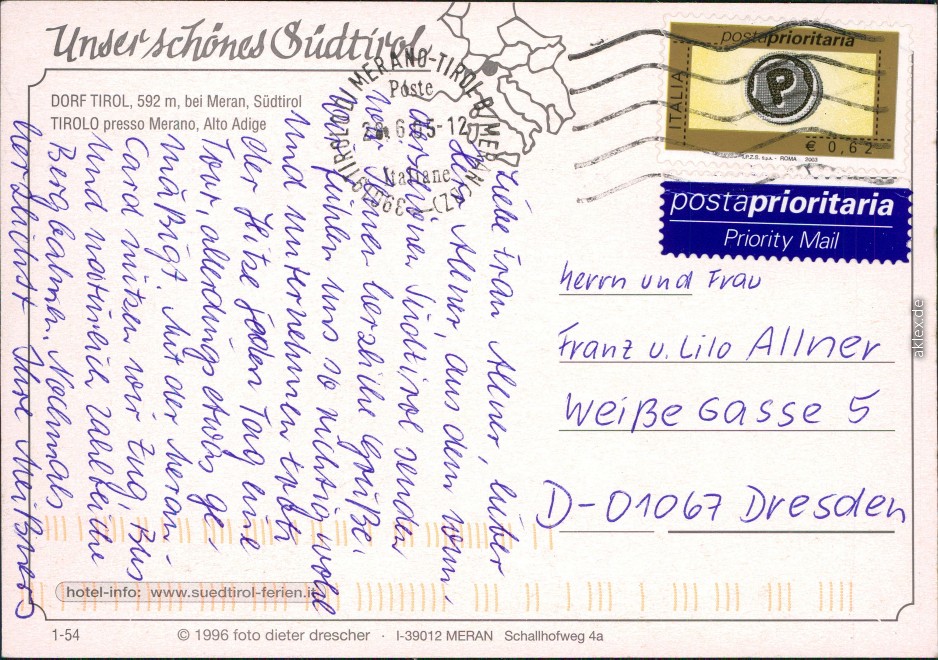 Unser schönes Südtirol
DORF TIROL, 592 m, bei Meran, Südtirol
TIROLO presso Merano, Alto Adige
Liebe Frau Allner, lieber
Hr. Allner, aus dem wun-
derschönen Südtirol senden
wir Ihnen herzliche Grüße.
Wir fühlen uns so richtig wohl
und unternehmen trotz
der Hitze jeden Tag eine
Tour, allerdings etwas ge-
mäßigt. Mit der Meran-
Card nützen wir Zug, Bus
und natürlich zahlreiche
Bergbahnen. Nochmals
herzlichst Ihre Meißners
TIROLO DI MERANO-TIROL B/MERAN
Poste
6.05-12
Italiane
39019 (BZ)
postaprioritaria
ITALIA
P
€ 0,62
I.P.Z.S. S.p.A. - ROMA 2003
postaprioritaria
Priority Mail
Herrn und Frau
Franz u. Lilo Allner
Weiße Gasse 5
D-01067 Dresden
hotel-info: www.suedtirol-ferien.it
1-54
© 1996 foto dieter drescher · I-39012 MERAN Schallhofweg 4a
aklex.de